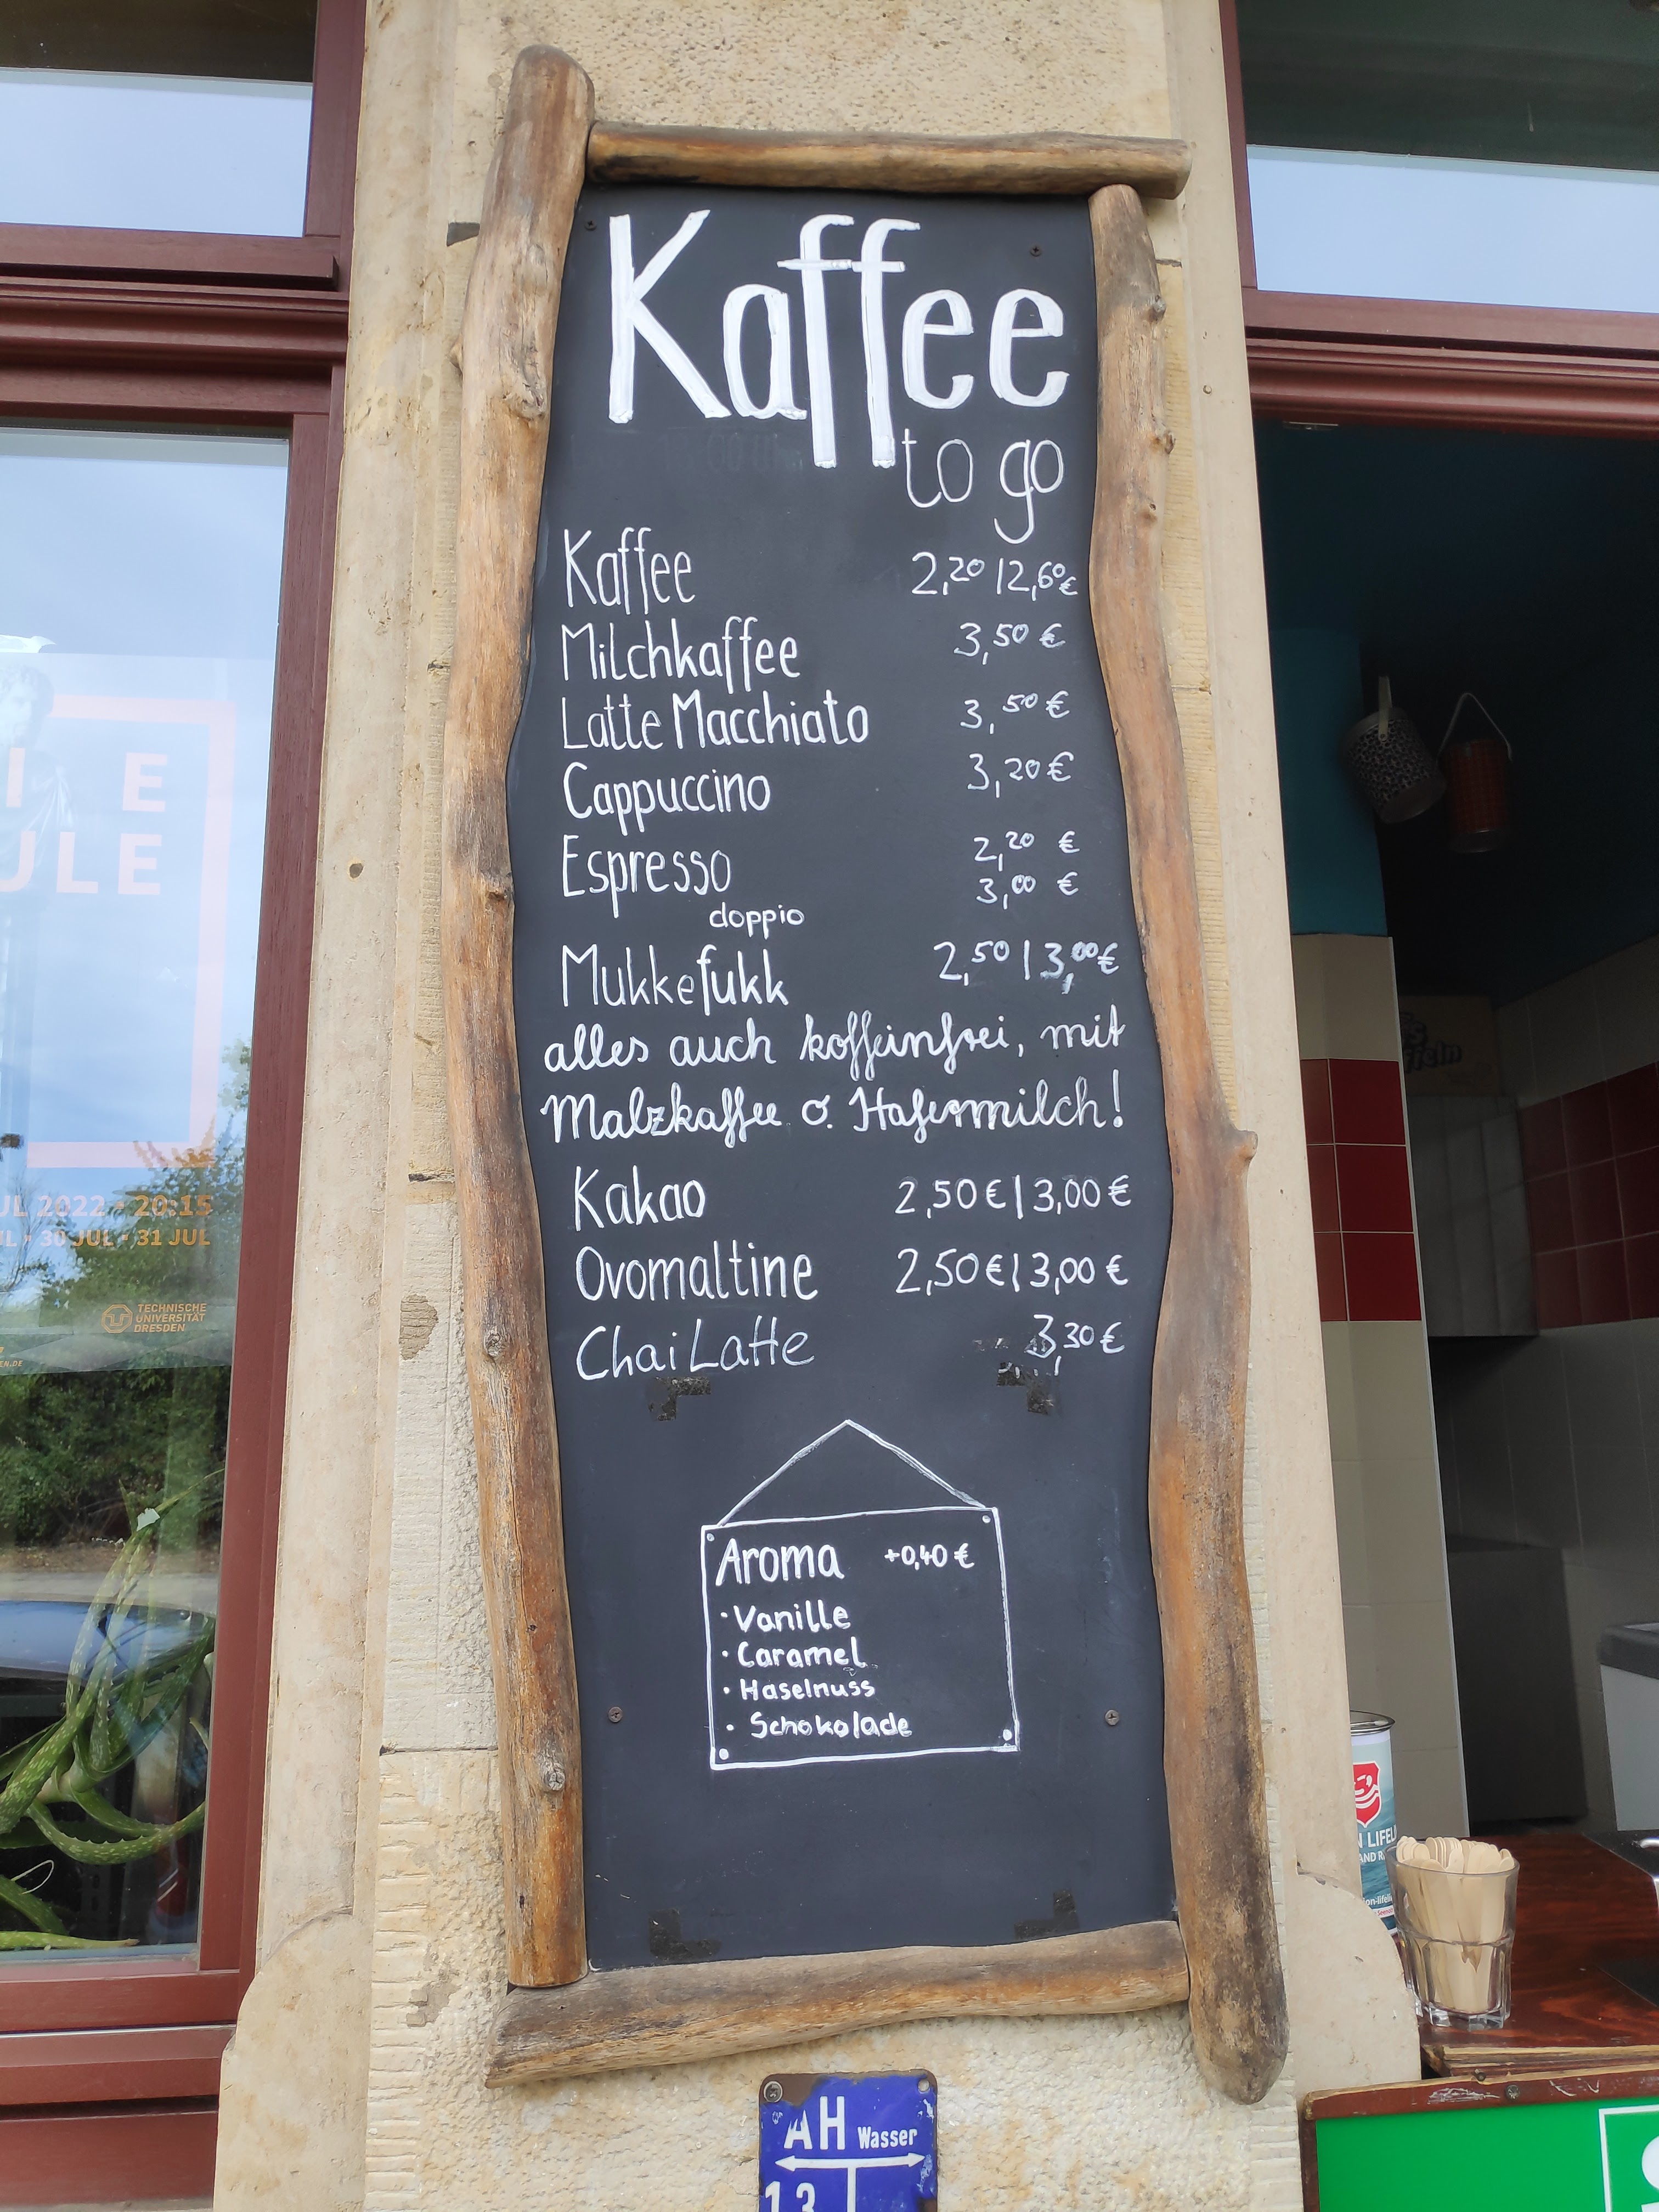 Kaffee
to go
Kaffee 2,20 | 2,60€
Milchkaffee 3,50 €
Latte Macchiato 3,50 €
Cappuccino 3,20 €
Espresso 2,20 €
doppio 3,00 €
Mukkefukk 2,50 | 3,00€
alles auch koffeinfrei, mit
Malzkaffee o. Hafermilch!
Kakao 2,50 € | 3,00 €
Ovomaltine 2,50 € | 3,00 €
Chai Latte 3,30 €
Aroma +0,40 €
· Vanille
· Caramel
· Haselnuss
· Schokolade
AH Wasser
13
I E
ULE
JUL 2022 · 20:15
30 JUL · 31 JUL
TECHNISCHE
UNIVERSITÄT
DRESDEN